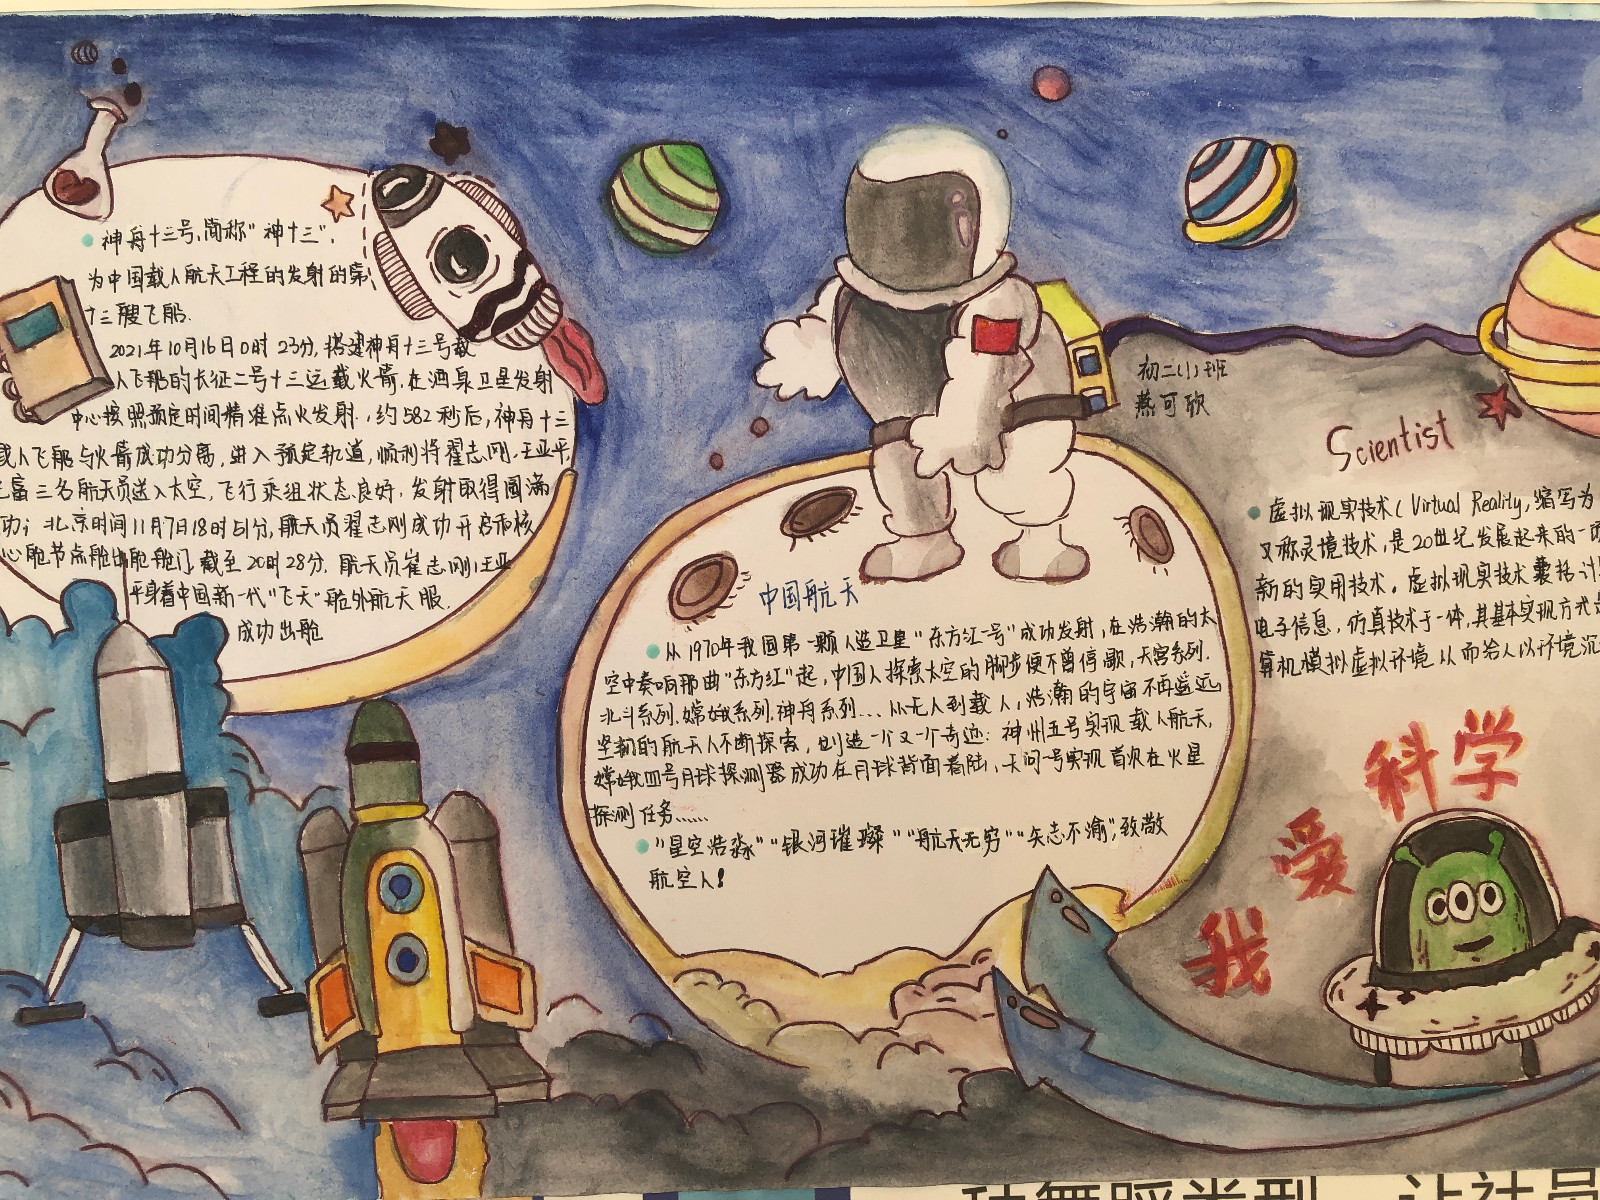 神舟十三号,简称"神十三",
为中国载人航天工程的发射的第
十三艘飞船.
2021年10月16日0时23分,搭建神舟十三号载
人飞船的长征二号十三遥载火箭,在酒泉卫星发射
中心按照预定时间精准点火发射.,约582秒后,神舟十三
载人飞船与火箭成功分离,进入预定轨道,顺利将翟志刚.王亚平,
富三名航天员送入太空,飞行乘组状态良好,发射取得圆满
功;北京时间11月7日18时51分,航天员翟志刚成功开启和核
心舱节点舱出舱舱门,截至20时28分,航天员崔志刚,王亚
平身着中国新一代"飞天"舱外航天服.
成功出舱
初二(1)班
燕可欣
中国航天
从1970年我国第一颗人造卫星"东方红一号"成功发射,在浩瀚的太
空中奏响那曲"东方红"起,中国人探索太空的脚步便不曾停歇,天宫系列.
北斗系列.嫦娥系列.神舟系列...从无人到载人,浩瀚的宇宙不再遥远
坚韧的航天人不断探索,创造一个又一个奇迹:神州五号实现载人航天,
嫦娥四号月球探测器成功在月球背面着陆,天问一号实现首次在火星
探测任务......
"星空浩淼""银河璀璨""航天无穷""矢志不渝",致敬
航空人!
Scientist
虚拟现实技术(Virtual Reality,缩写为
又称灵境技术,是20世纪发展起来的一
新的实用技术。虚拟现实技术囊括计
电子信息,仿真技术于一体,其基本实现方式
算机模拟虚拟环境从而给人以环境沉
我爱科学